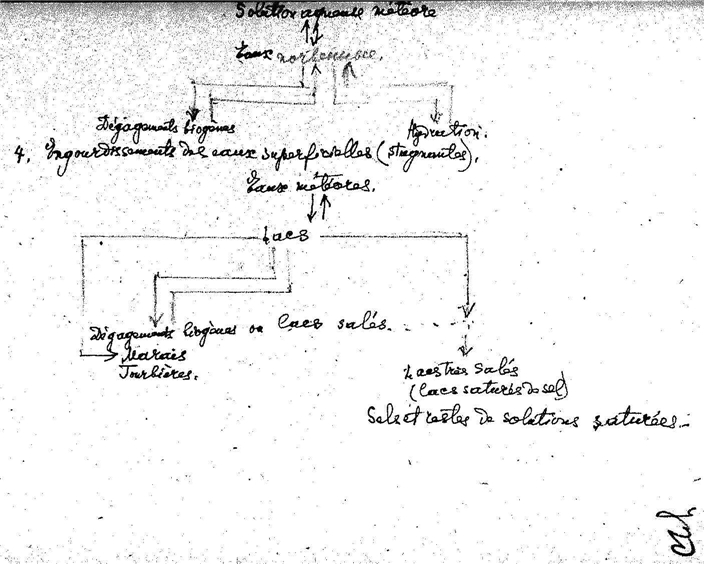 Solution aqueuse météore
Eaux
Dégagements biogènes
Hydration.
4. Engourdissements des eaux superficielles (stagnantes).
Eaux météores.
Lacs
Dégagements biogènes ou lacs salés.
Marais
Tourbières.
Lacs très salés
(lacs saturés de sel)
Sels et restes de solutions saturées.